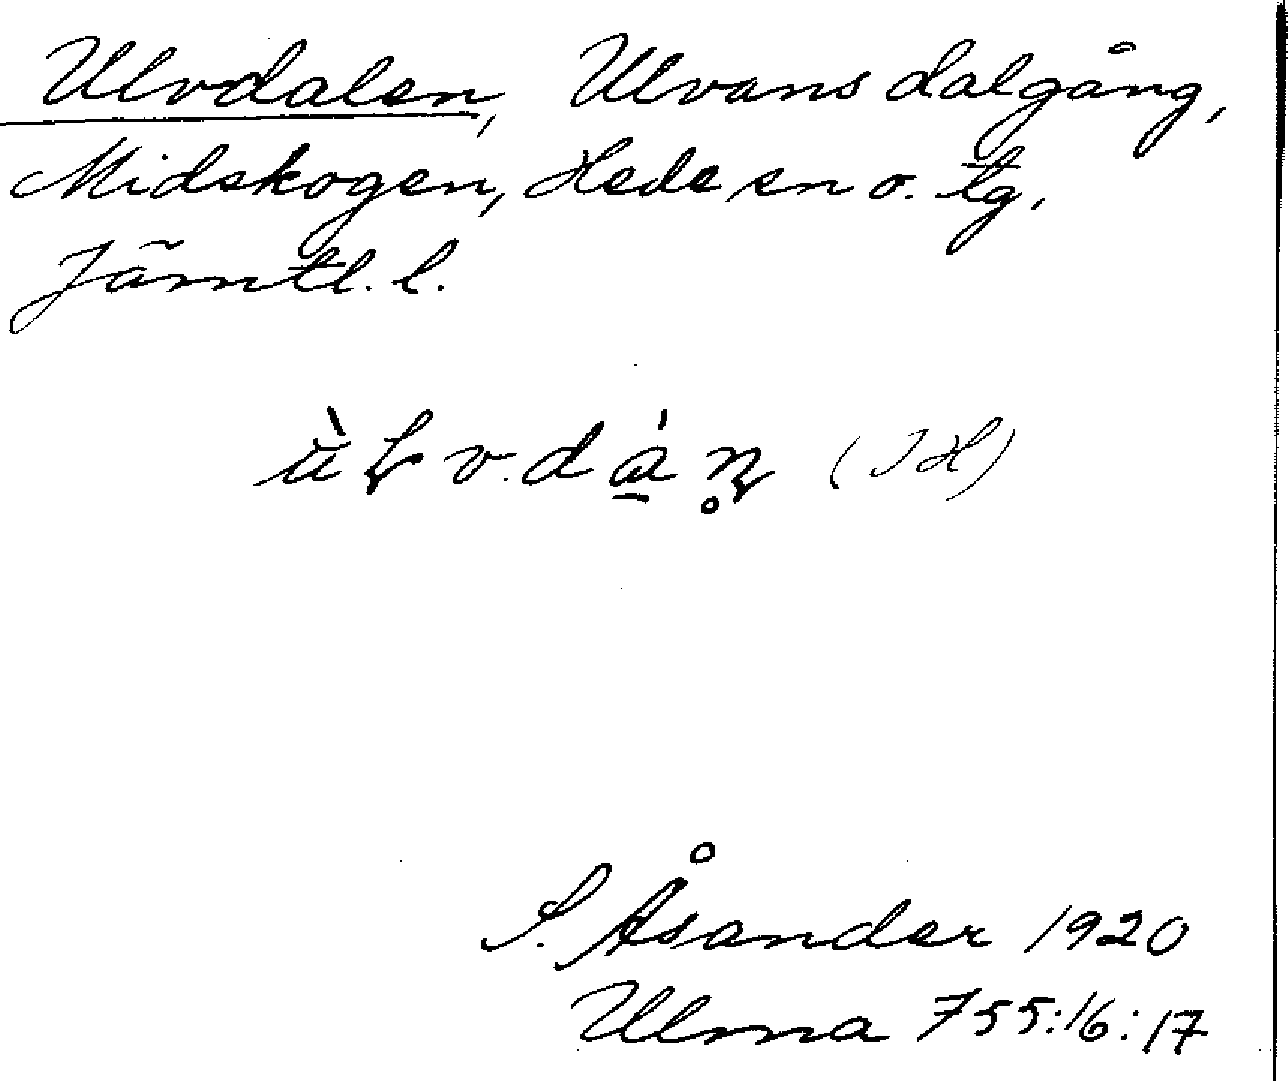 Ulvdalen, Ulvans dalgång,
Midskogen, Hede sn o. tg,
Jämtl. l.
(JH)
S. Åsander 1920
Ulma 755:16:17